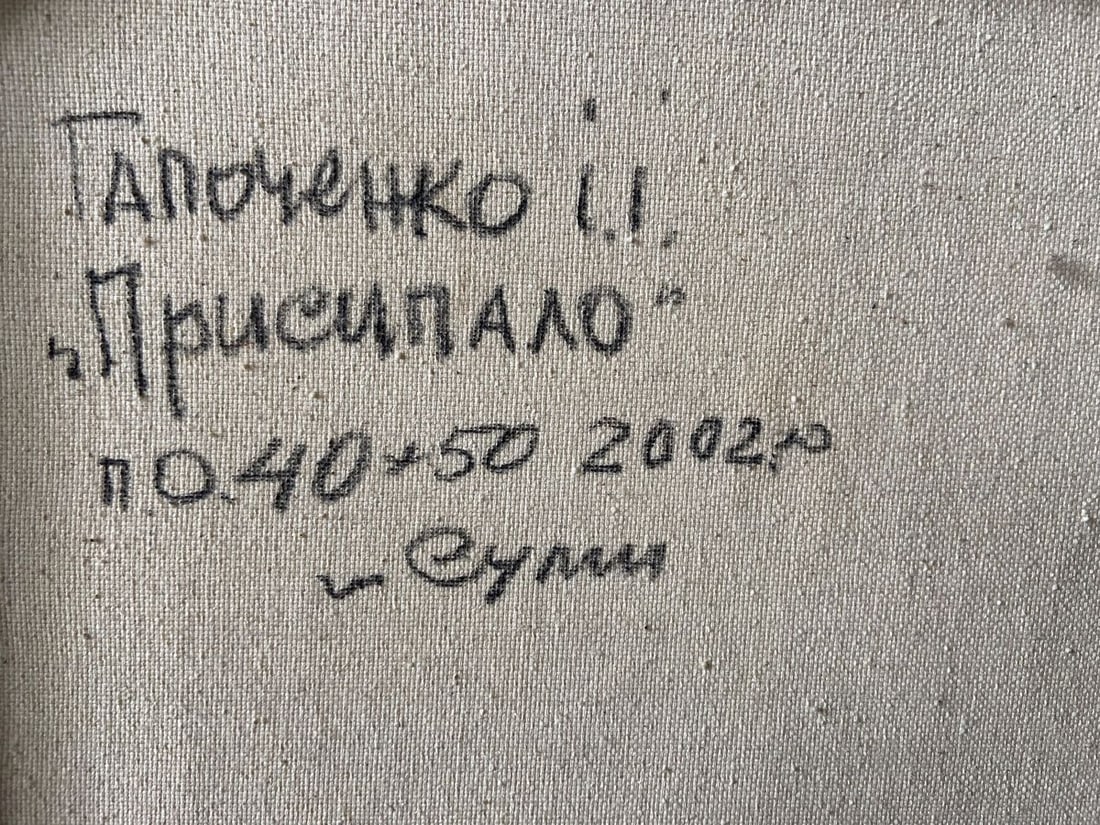 Гапоченко І.І.
„Присипало"
п.о. 40×50 2002 р
м Суми